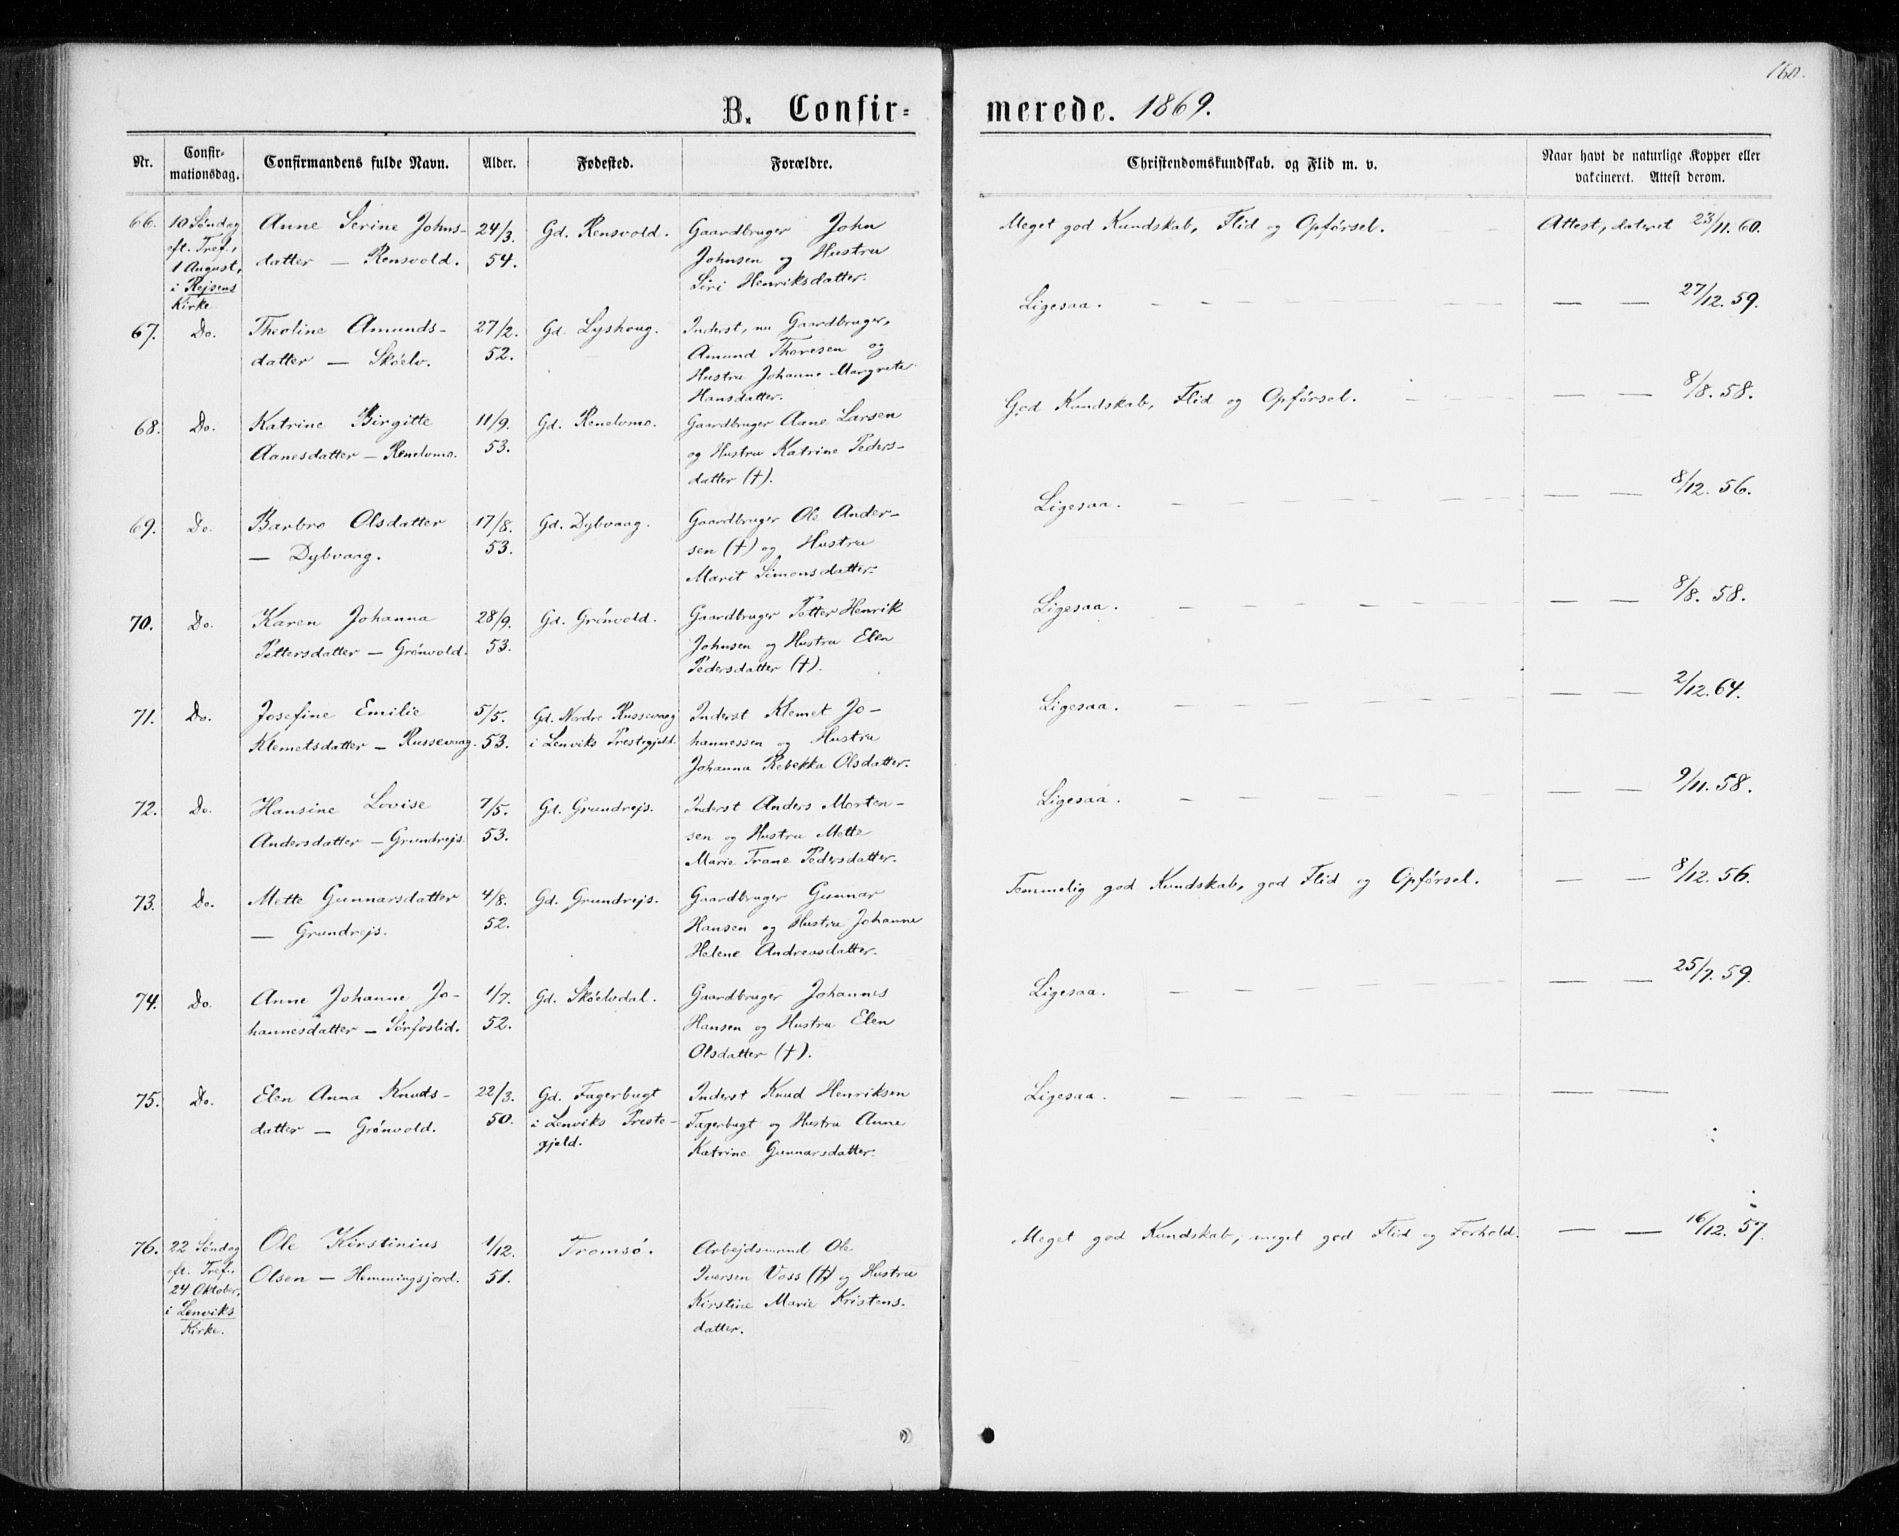 160.
B. Confir-
merede. 1869.
Nr. Confir-mationsdag. Confirmandens fulde Navn. Alder. Fødested. Forældre. Christendomskundskab. og Flid m. v. Naar havt de naturlige Kopper eller vakcineret. Attest derom.
66. 10 Søndag Anne Serine Johns- 24/3. Gd. Rensvold. Gaardbruger John Meget god Kundskab, Flid og Opførsel. Attest, dateret 23/11. 60.
eft. Tref., datter — Rensvold. 54. Johnsen og Hustru
1 August, Siri Henriksdatter.
i Rejsens
Kirke
67. Do. Theoline Amunds- 27/2. Gd. Lyshoug. Inderst, nu Gaardbruger, Ligesaa. — — 27/12. 59.
datter — Skøelv. 52. Amund Thoresen og
Hustru Johanne Margrete
Hansdatter.
68. Do. Katrine Birgitte 11/9. Gd. Renelvmo. Gaardbruger Aane Larsen God Kundskab, Flid og Opførsel. — — 8/8. 58.
Aanesdatter — Renelvmo. 53. og Hustru Katrine Peders-
datter (†).
69. Do. Barbro Olsdatter 17/8. Gd. Dybvaag. Gaardbruger Ole Ander- Ligesaa. — — 8/12. 56.
— Dybvaag. 53. sen (†) og Hustru
Marit Simonsdatter.
70. Do. Karen Johanna 28/9. Gd. Grønvold. Gaardbruger Petter Henrik Ligesaa. — — 8/8. 58.
Pettersdatter — Grønvold. 53. Johnsen og Hustru Elen
Pedersdatter (†).
71. Do. Josefine Emilie 5/5. Gd. Nordre Russevaag Inderst Klemet Jo- Ligesaa. — — 2/12. 64.
Klemetsdatter — Russevaag. 53. i Lenviks Prestegjeld. hannessen og Hustru
Johanna Rebekka Olsdatter.
72. Do. Hansine Lovise 7/5. Gd. Grundrejs. Inderst Anders Morten- Ligesaa. — — 9/11. 58.
Andersdatter — Grundrejs. 53. sen og Hustru Mette
Marie Trane Pedersdatter.
73. Do. Mette Gunnarsdatter 4/8. Gd. Grundrejs. Gaardbruger Gunnar Temmelig god Kundskab, god Flid og Opførsel. — — 8/12. 56.
— Grundrejs. 52. Hansen og Hustru Johanne
Helene Andreasdatter.
74. Do. Anne Johanne Jo- 1/7. Gd. Skøelvdal. Gaardbruger Johannes Ligesaa. — — 25/7. 59.
hannesdatter — Sørfoslid. 52. Hansen og Hustru Elen
Olsdatter (†).
75. Do. Elen Anna Knuds- 22/3. Gd. Fagerbugt Inderst Knud Henriksen Ligesaa. — —
datter — Grønvold. 50. i Lenviks Preste- Fagerbugt og Hustru Anne
gjeld. Katrine Gunnarsdatter.
76. 22 Søndag Ole Kirstinius 1/12. Tromsø. Arbejdsmand Ole Meget god Kundskab, meget god Flid og Forhold. — — 16/12. 57.
eft. Tref., Olsen — Hemmingsjord. 51. Iversen Voss (†) og Hustru
24 Oktober, Kirstine Marie Kristens-
i Lenviks datter.
Kirke.